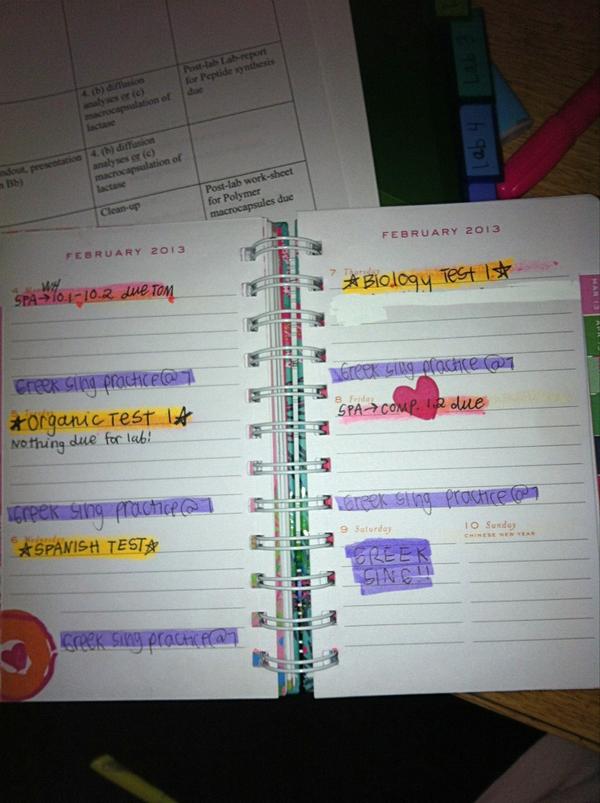 Post-lab Lab-report
for Peptide synthesis
due
4. (b) diffusion
analyses or (c)
macrocapsulation of
lactase
ndout, presentation
Bb)
4. (b) diffusion
analyses or (c)
macrocapsulation of
lactase
Clean-up
Post-lab work-sheet
for Polymer
macrocapsules due
Lab 3
lab 4
FEBRUARY 2013
WH
SPA→10.1-10.2 due TOM
Greek sing practice@7
★Organic TEST 1★
Nothing due for lab!
Greek sing practice@7
6
★SPANISH TEST★
Greek sing practice@7
FEBRUARY 2013
7 Thursday
★Biology TEST 1★
Greek sing practice@7
8 Friday
SPA→COMP. 1.2 due
Greek sing practice@7
9 Saturday
GREEK
SING!!
10 Sunday
CHINESE NEW YEAR
MAR 13